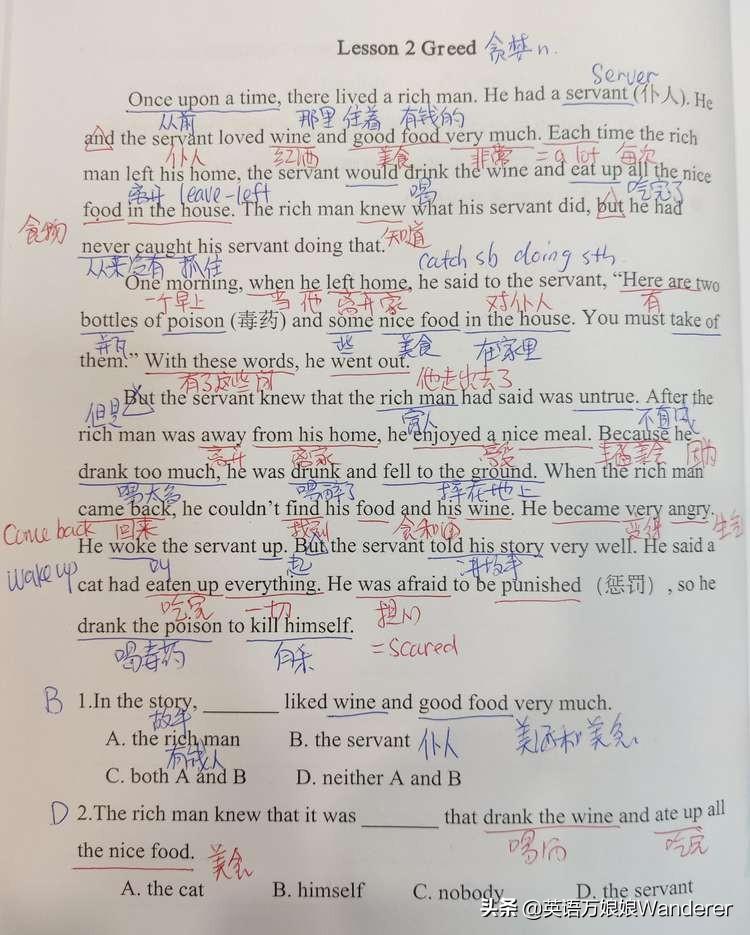 Lesson 2 Greed 贪婪 n.
Server
Once upon a time, there lived a rich man. He had a servant (仆人). He
从前 那里 住着 有钱的
and the servant loved wine and good food very much. Each time the rich
仆人 红酒 美食 非常 = a lot 每次
man left his home, the servant would drink the wine and eat up all the nice
离开 leave-left 喝 吃完了
food in the house. The rich man knew what his servant did, but he had
食物 知道
never caught his servant doing that.
从来没有 抓住 catch sb doing sth
One morning, when he left home, he said to the servant, “Here are two
一个早上 当 他 离开家 对仆人 有
bottles of poison (毒药) and some nice food in the house. You must take of
瓶 些 美食 在家里
them.” With these words, he went out.
有了这些词 他走出去了
But the servant knew that the rich man had said was untrue. After the
但是 富人 不真实
rich man was away from his home, he enjoyed a nice meal. Because he
离开 离家 享受 丰富美食 因为
drank too much, he was drunk and fell to the ground. When the rich man
喝太多 喝醉了 摔在地上
came back, he couldn’t find his food and his wine. He became very angry.
Come back 回来 找到 食和酒 变得 生气
He woke the servant up. But the servant told his story very well. He said a
wake up 叫 起 讲故事
cat had eaten up everything. He was afraid to be punished （惩罚）, so he
吃完 一切 担心
drank the poison to kill himself.
喝毒药 自杀 = scared
B 1.In the story, _______ liked wine and good food very much.
故事
A. the rich man B. the servant 仆人 美酒和美食
有钱人
C. both A and B D. neither A and B
D 2.The rich man knew that it was _______ that drank the wine and ate up all
喝酒 吃完
the nice food. 美食
A. the cat B. himself C. nobody D. the servant
头条 @英语万娘娘Wanderer